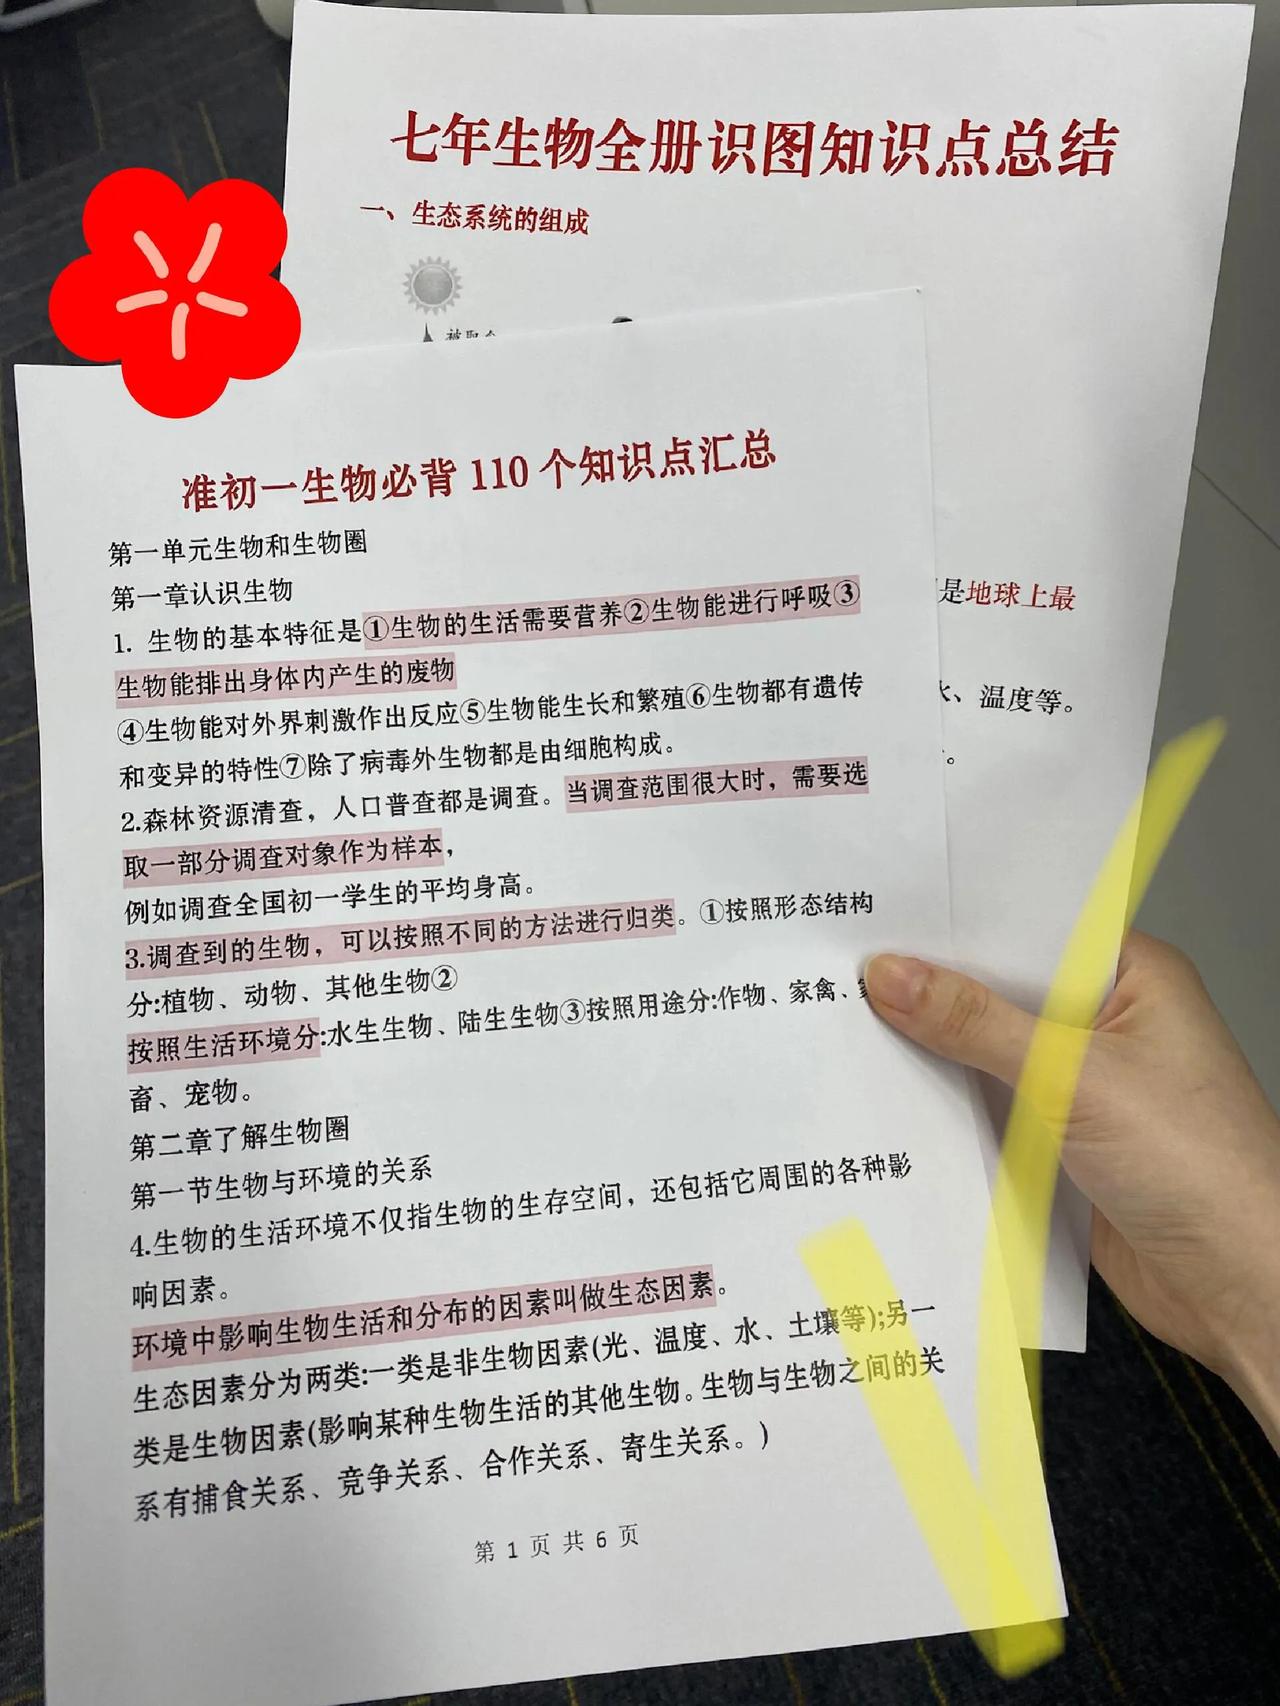 七年生物全册识图知识点总结
一、生态系统的组成
是地球上最
、温度等。
。
准初一生物必背 110 个知识点汇总
第一单元生物和生物圈
第一章认识生物
1. 生物的基本特征是①生物的生活需要营养②生物能进行呼吸③
生物能排出身体内产生的废物
④生物能对外界刺激作出反应⑤生物能生长和繁殖⑥生物都有遗传
和变异的特性⑦除了病毒外生物都是由细胞构成。
2.森林资源清查，人口普查都是调查。当调查范围很大时，需要选
取一部分调查对象作为样本，
例如调查全国初一学生的平均身高。
3.调查到的生物，可以按照不同的方法进行归类。①按照形态结构
分:植物、动物、其他生物②
按照生活环境分:水生生物、陆生生物③按照用途分:作物、家禽、
畜、宠物。
第二章了解生物圈
第一节生物与环境的关系
4.生物的生活环境不仅指生物的生存空间，还包括它周围的各种影
响因素。
环境中影响生物生活和分布的因素叫做生态因素。
生态因素分为两类:一类是非生物因素(光、温度、水、土壤等);另一
类是生物因素(影响某种生物生活的其他生物。生物与生物之间的关
系有捕食关系、竞争关系、合作关系、寄生关系。)
第 1 页 共 6 页